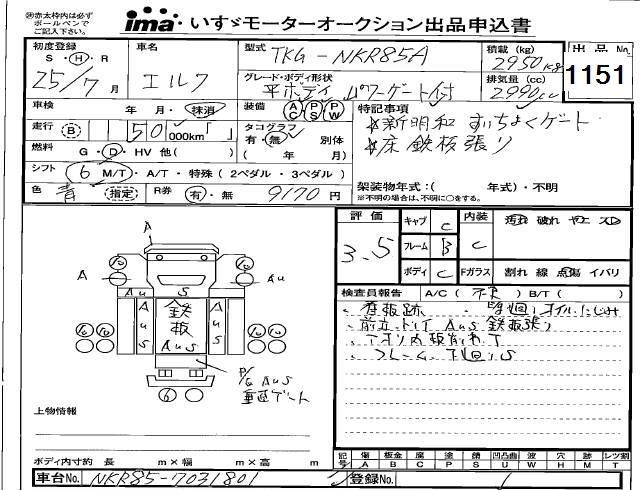 ㊟赤太枠内は必ず
ボールペンで
ご記入下さい。
ima いすゞモーターオークション出品申込書
初度登録
S・H・R
25/7月
車名
エルフ
型式
TKG-NKR85A
積載(kg)
2950kg
出品No.
1151
グレード・ボディ形状
平ボディ パワーゲート付
排気量(cc)
2990cc
車検
年 月・抹消
装備
AC PS PW
特記事項
新明和 すいちょくゲート
床鉄板張り
走行
B
1150
000km「 」
タコグラフ
有・無
別体
( 年 月)
燃料
G・D・HV 他( )
シフト
6 M/T・A/T・特殊(2ペダル・3ペダル)
色
青
指定
R券
有・無
9170円
架装物年式:( 年式)・不明
※不明の場合は、不明に○をする。
評価
3.5
キャブ
C
内装
C
汚れ 破れ ヤケ スレ
フレーム
B
ボディ
C
Fガラス
割れ 線 点傷 イバリ
検査員報告
A/C(不良)B/T( )
看板跡
前立・トリイ AUS 鉄板張り
アオリ内板削れT
フレーム 下回りS
A
A
A
S
AUS
AUS
AUS
鉄板
AUS
P/G AUS
垂直ゲート
6
上物情報
ボディ内寸約 長 m×幅 m×高 m
記号
傷 A
板金 B
腐 C
塗 P
錆 S
凹凸曲 U
波 W
穴 H
跡 M
レツ割 T
車台No.
NKR85-7031801
登録No.